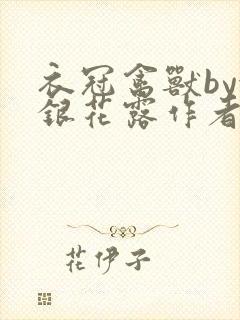 衣冠禽獸by
銀花露作者
花伊子